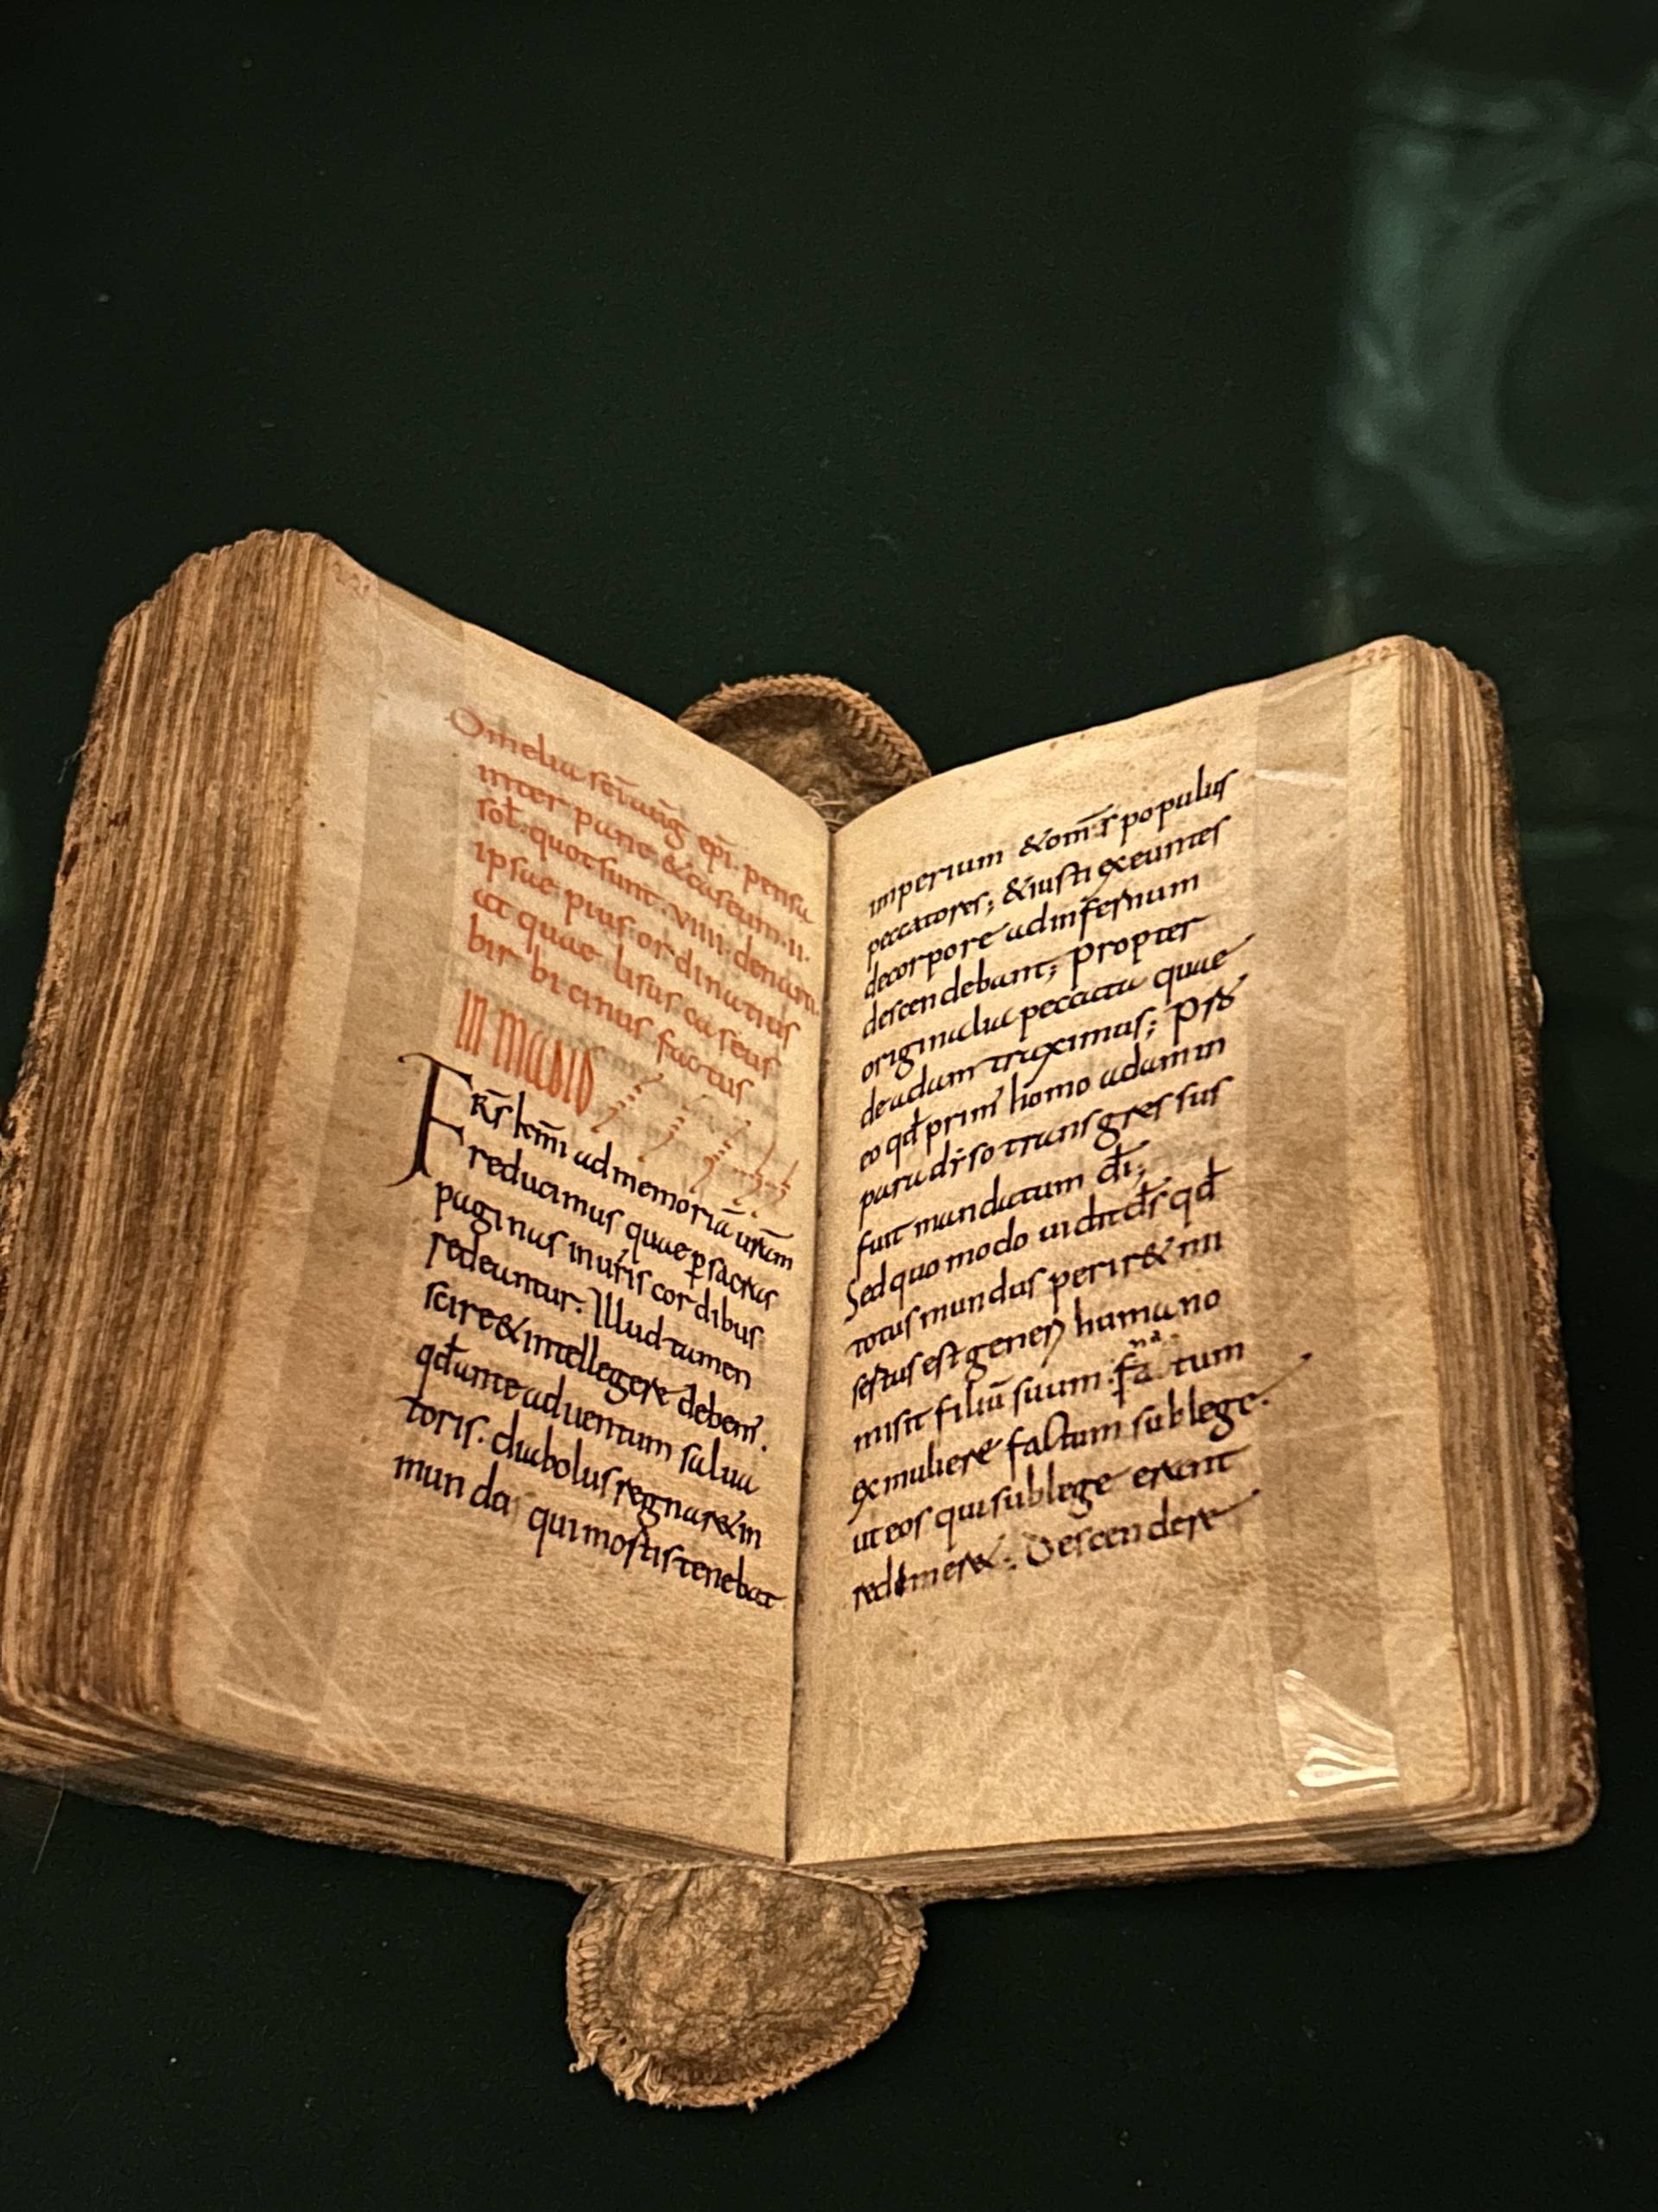 221
Omelia sc̄i auḡ ep̄i. pensa
inter pane & caseum .ii.
sol̄. quot sunt . viiii . denara
ipsae pius ordinatus
at quae lisus caseus
bir bicinus factus
In madio
Fr̄s kmī ad memoriā ur̄am
reducimus quae p̱ sacras
paginas in ur̄is cordibus
sedeuntur. Illud tamen
scire & intellegere debem'.
qd̄ ante aduentum salua
toris. diabolus regnar& in
munda qui mostis tenebat
222
imperium & om̄s populus
peccatores; & iusti exeuntes
de corpore ad infernum
descendebant; propter
originalia peccata quae
de adam traximus;
eo qd̄ prim' homo adam in
paradiso transgressus
fuit mandatum dī;
Sed quomodo uidit dr̄s qd̄
totus mundus perir& mi
sestus est generi humano
misit filiū suum. fa na tum
ex muliere factum sub lege.
ut eos qui sub lege erant
redimer&. Descendere